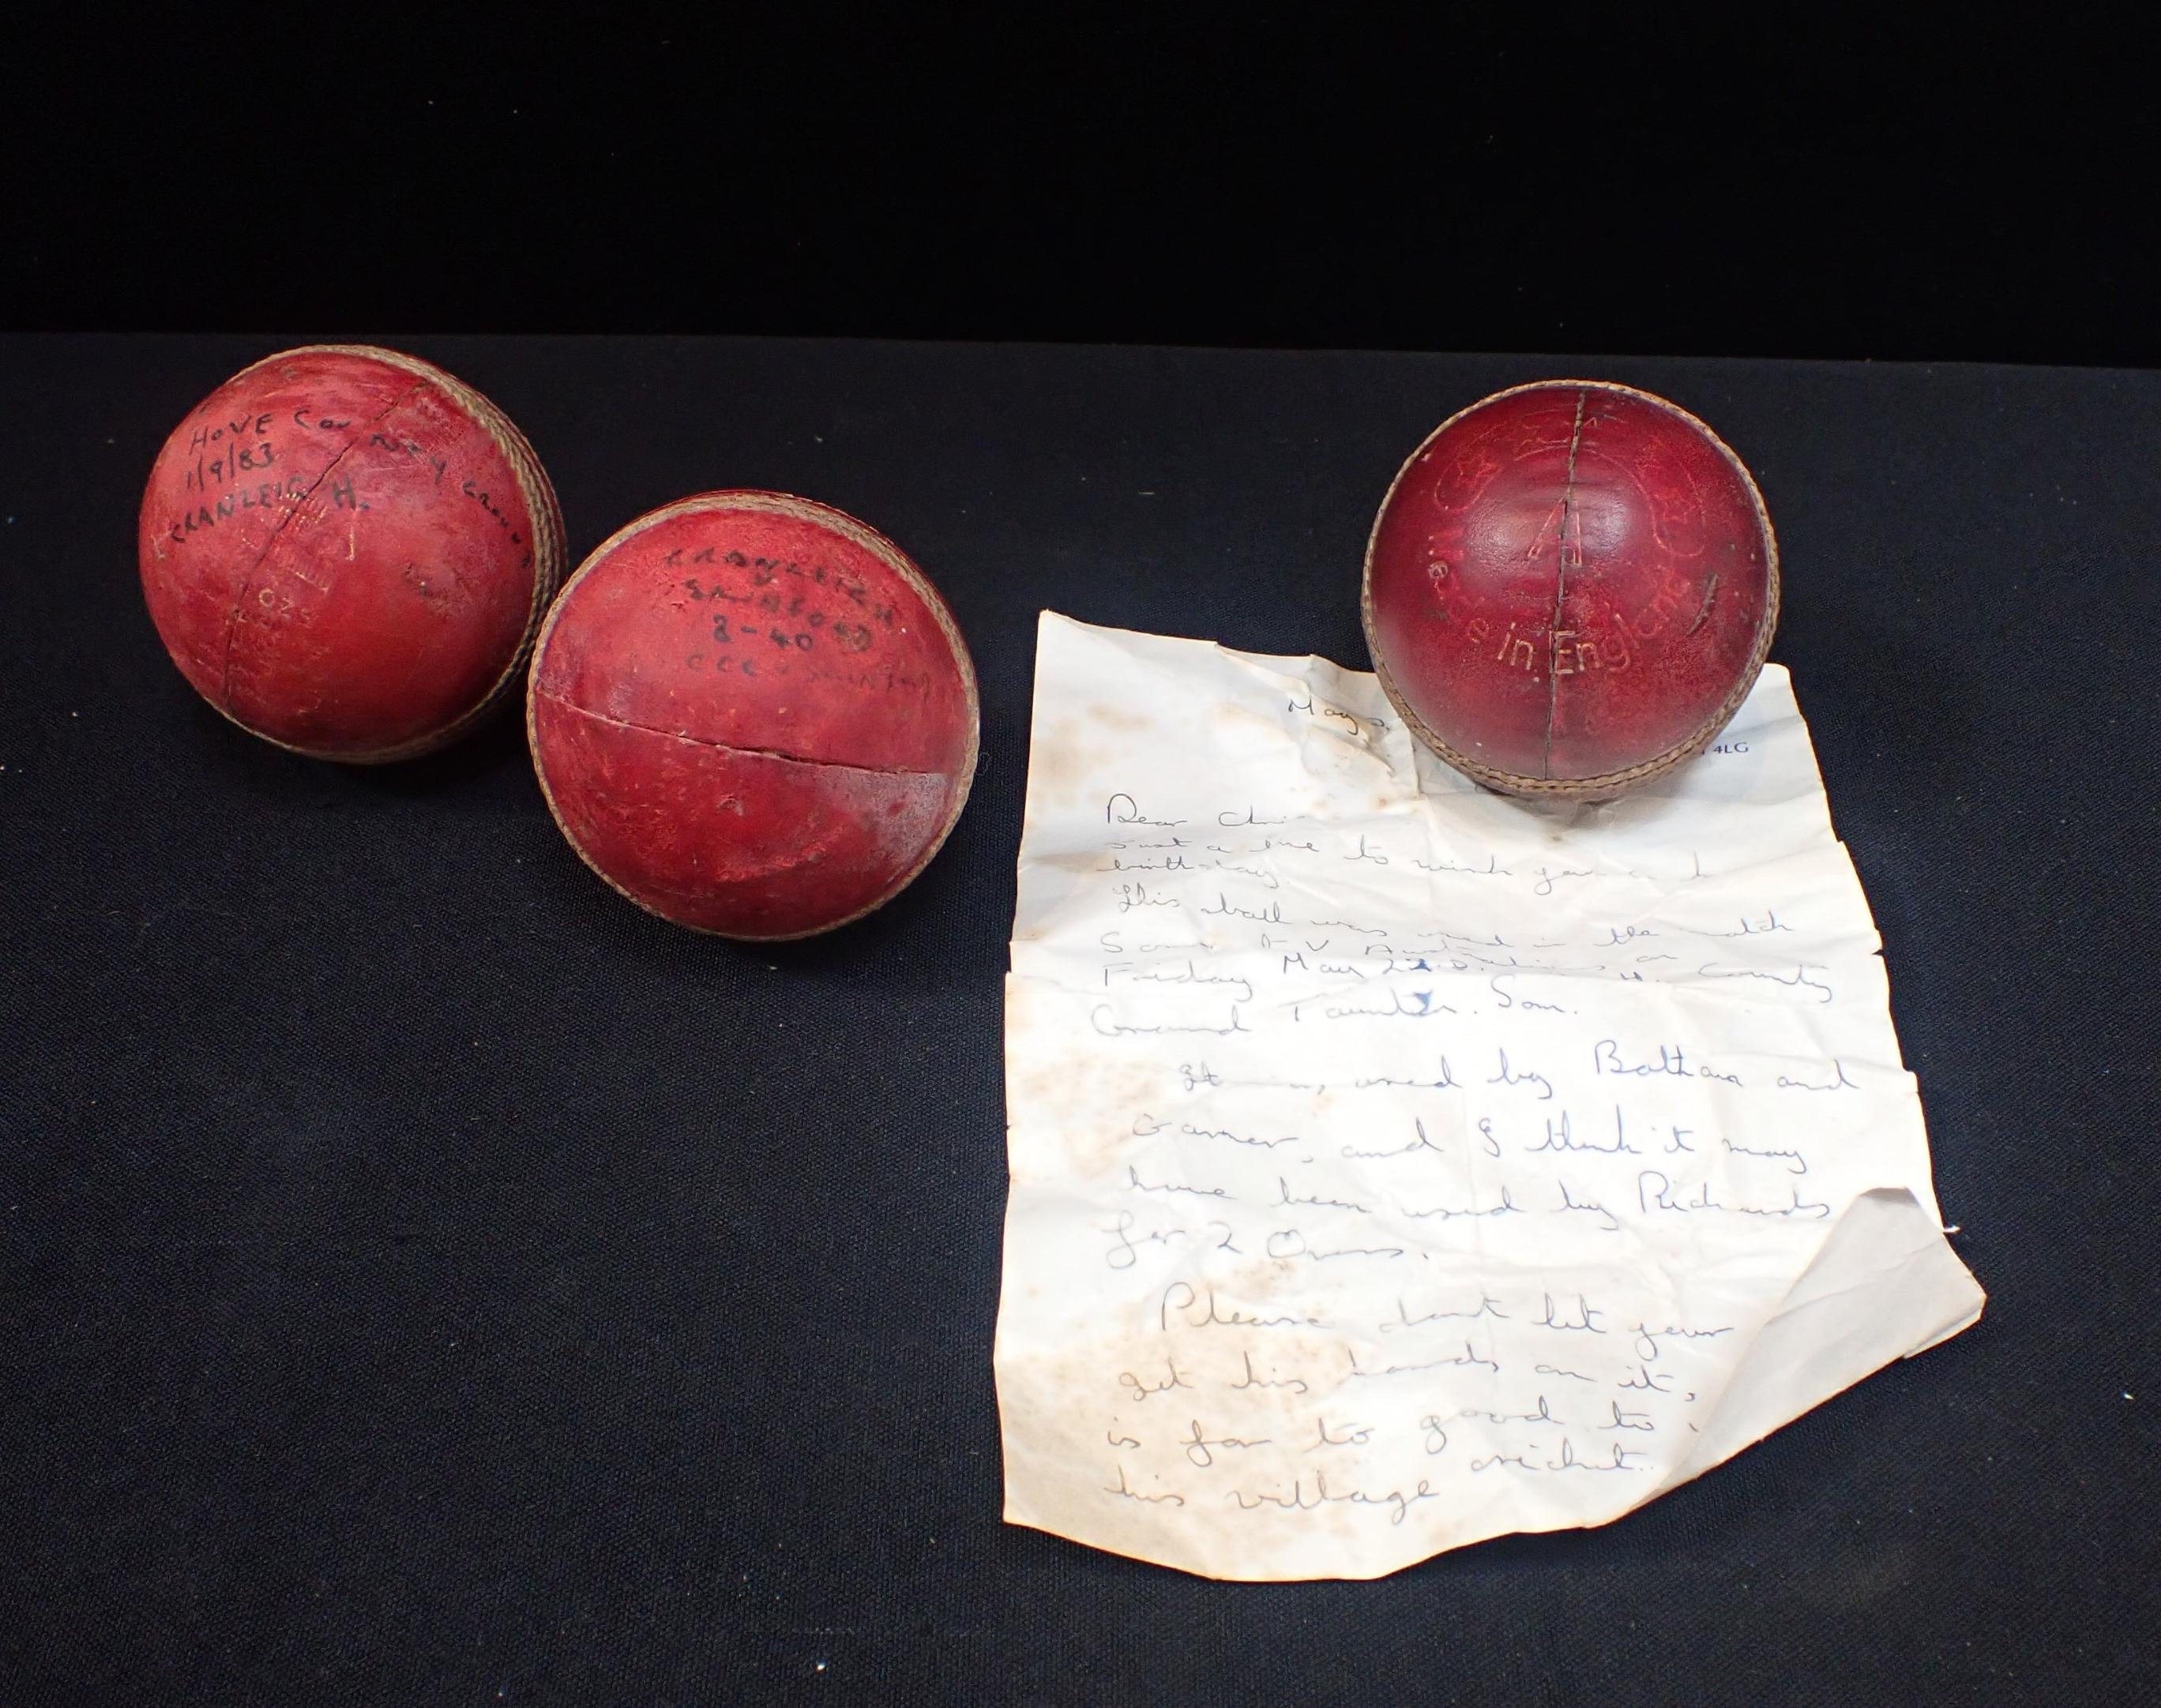 HOVE COUNTY GROUND
1/9/83
CRANLEIGH H.
OZS
CRANLEIGH
8-40
Made in England
A
May
4LG
Dear
Just a line to wish you
birthday.
This ball was used in the match
V Australians on
Friday May 22. County
Ground Taunton. Som.
It used by Botham and
Garner, and I think it may
have been used by Richards
for 2 Overs.
Please dont let your
get his hands on it,
is far to good to
his village cricket.